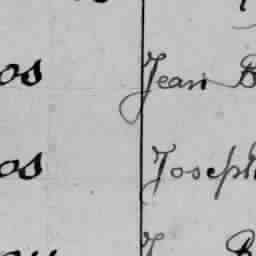 os Jean B
os Joseph